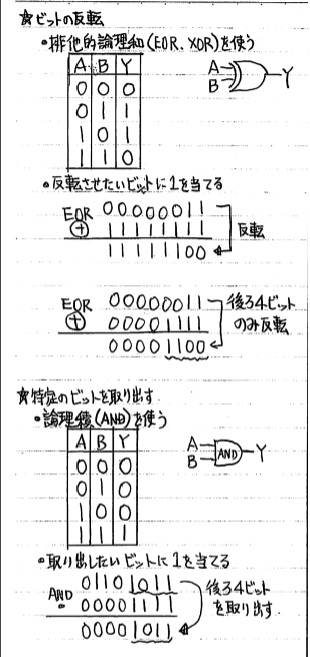 ☆ビットの反転
•排他的論理和(EOR、XOR)を使う
A B Y
0 0 0
0 1 1
1 0 1
1 1 0
A
B
Y
•反転させたいビットに1を当てる
EOR 00000011
⊕ 11111111
11111100
反転
EOR 00000011
⊕ 00001111
00001100
後ろ4ビット
のみ反転
☆特定のビットを取り出す
•論理積(AND)を使う
A B Y
0 0 0
0 1 0
1 0 0
1 1 1
A
B
AND
Y
•取り出したいビットに1を当てる
01101011
AND • 00001111
00001011
後ろ4ビット
を取り出す.